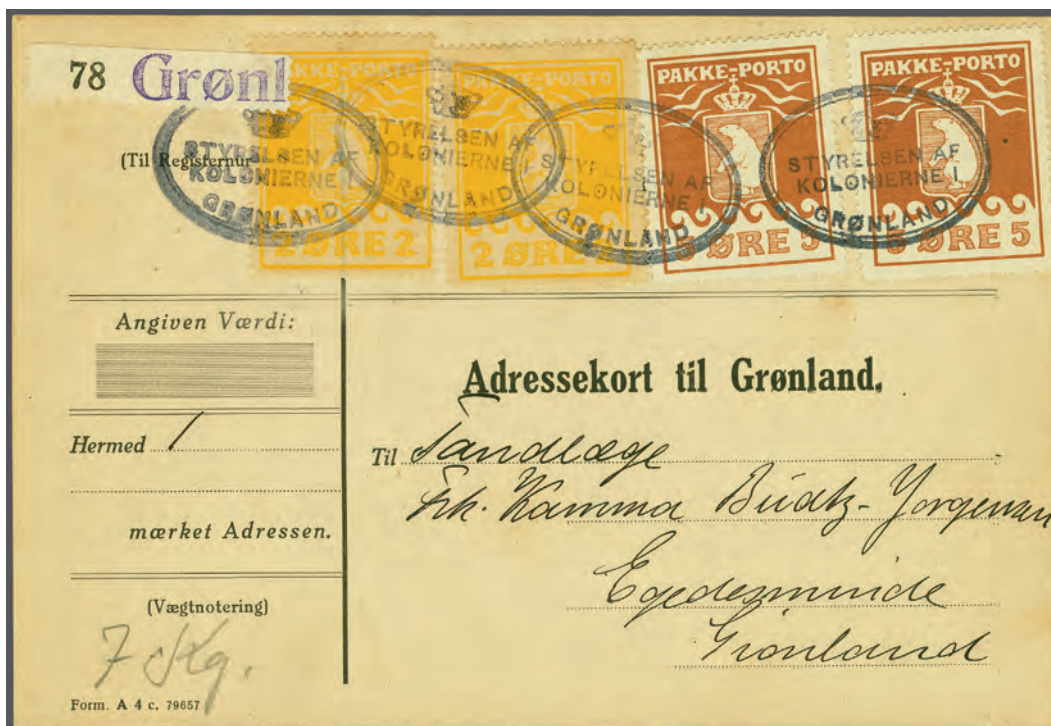 78 Grønl
PAKKE-PORTO
2 ØRE 2
PAKKE-PORTO
2 ØRE 2
PAKKE-PORTO
5 ØRE 5
PAKKE-PORTO
5 ØRE 5
STYRELSEN AF
KOLONIERNE I
GRØNLAND
STYRELSEN AF
KOLONIERNE I
GRØNLAND
STYRELSEN AF
KOLONIERNE I
GRØNLAND
STYRELSEN AF
KOLONIERNE I
GRØNLAND
(Til Registernur
Angiven Værdi:
Hermed 1
mærket Adressen.
(Vægtnotering)
7 Kg.
Form. A 4 c. 79657
Adressekort til Grønland.
Til Tandlæge
Frk. Kamma Budtz-Jørgensen
Egedesminde
Grønland